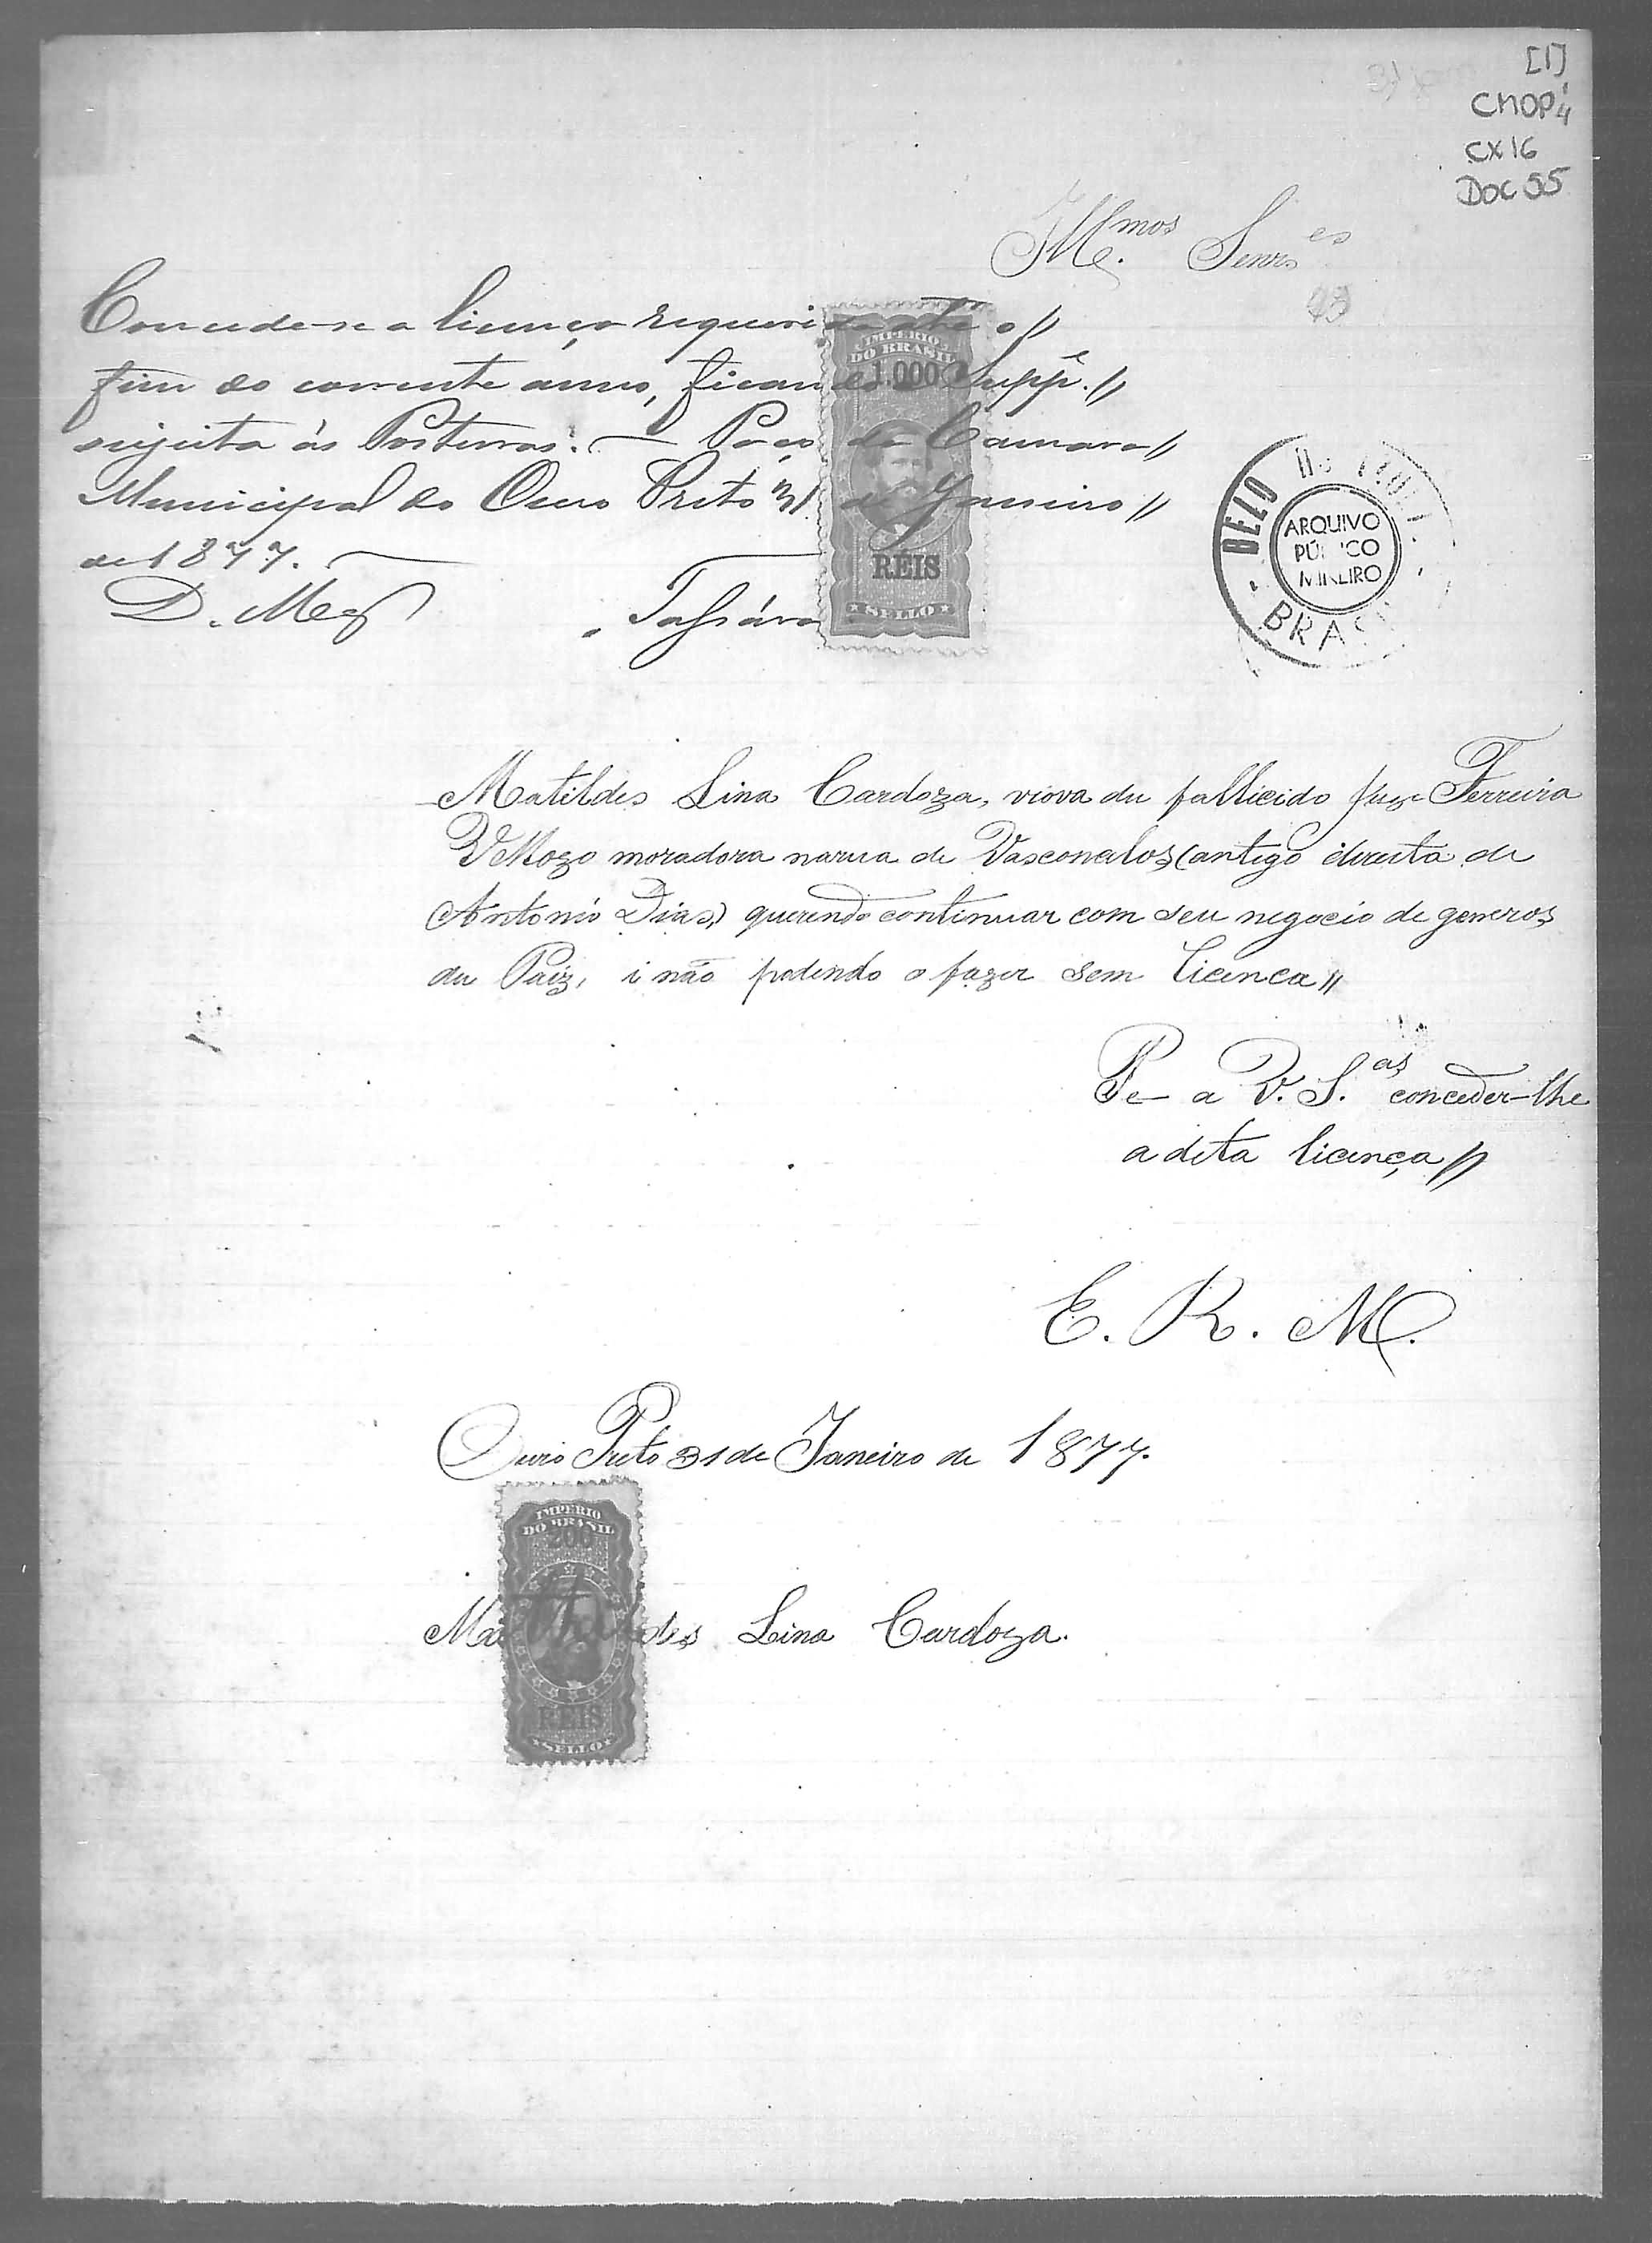 [1]
CMOP 4
CX16
DOC 55
Ill.mos Senr.es
Concede-se a licença requerida até o //
fim do corrente anno, ficando a Supp.e //
sujeita ás Posturas. — Paço da Camara //
Municipal do Ouro Preto 31 de Janeiro //
de 1877. —
D. Mag
IMPERIO
DO BRASIL
1,000
REIS
SELLO
BELO
ARQUIVO
PÚ CO
MINEIRO
BRAS
Matildes Lina Cardoza, viova du fallicido Juze Ferreira
Vellozo moradora narua de Vasconcelos (antigo direita de
Antonio Dias) querendo continuar com seu negocio de generos
du Paiz, i não podendo o fazer sem licenca //
Pe- a V. S.as conceder-lhe
a dita licença //
E. R. M.
Ouro Preto 31 de Janeiro de 1877.
IMPERIO
DO BRASIL
200
Matildes Lina Cardoza.
REIS
SELLO